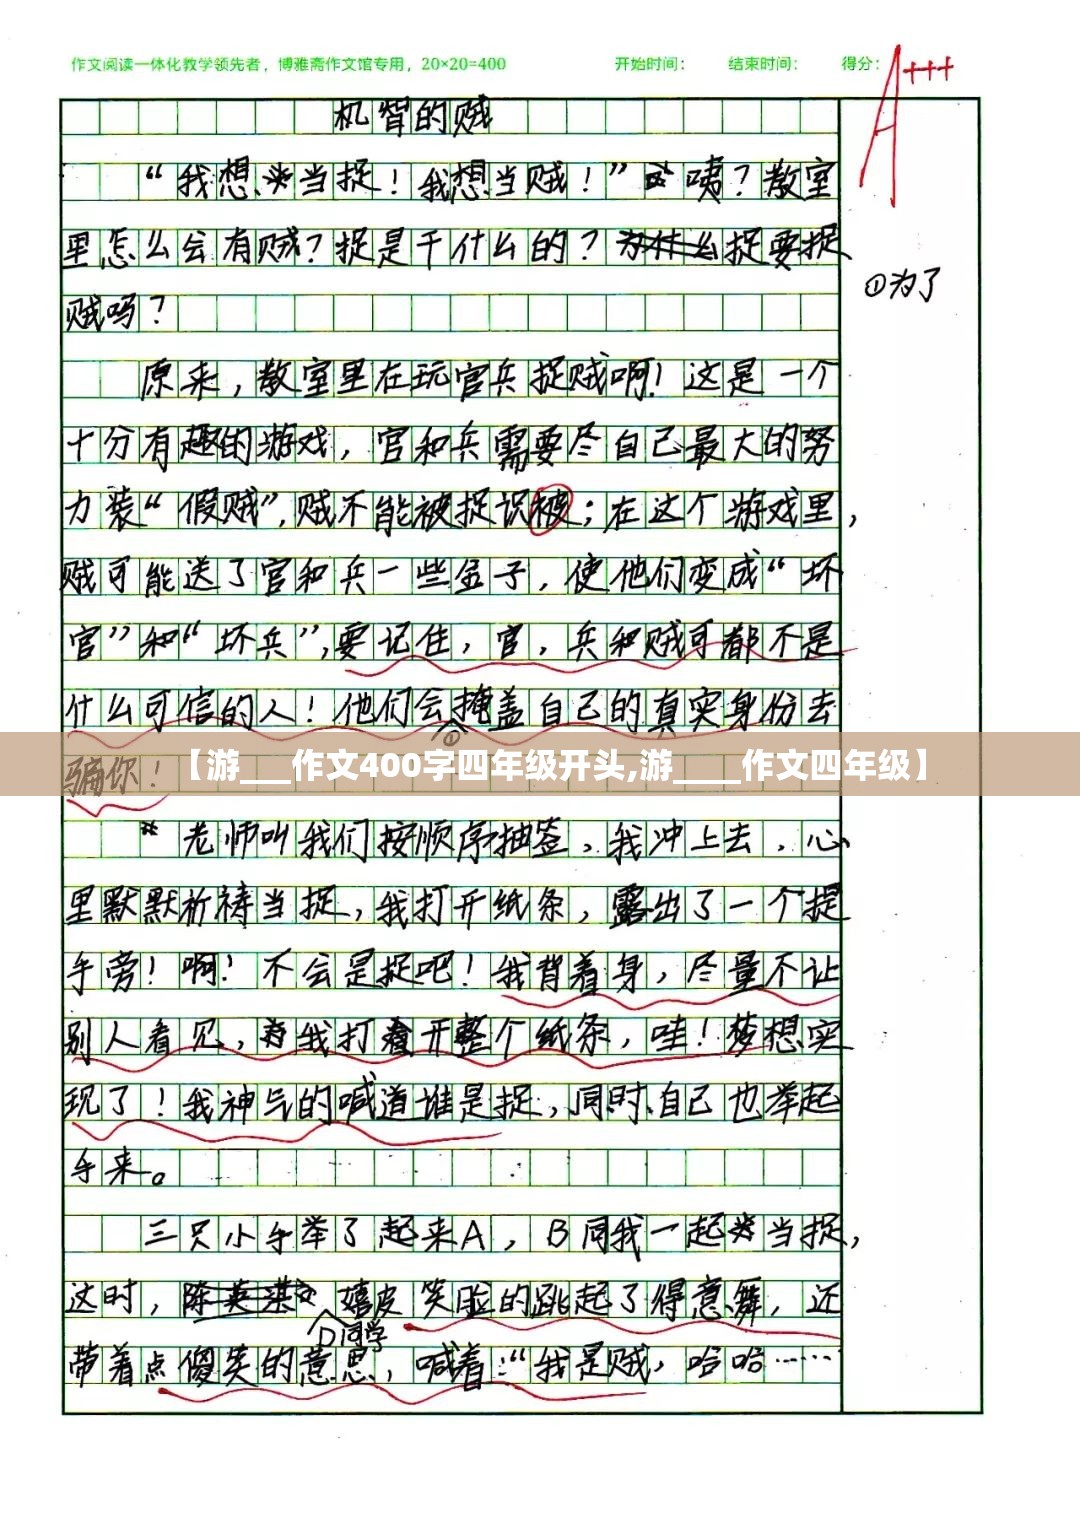 作文阅读一体化教学领先者，博雅斋作文馆专用，20×20=400 开始时间： 结束时间： 得分：
A+++
机智的贼
“我想当捉！我想当贼！”咦？教室
里怎么会有贼？捉是干什么的？捉要捉
①为了
贼吗？
原来，教室里在玩官兵捉贼啊！这是一个
十分有趣的游戏，官和兵需要尽自己最大的努
力装“假贼”，贼不能被捉识被；在这个游戏里，
贼可能送了官和兵一些金子，使他们变成“坏
官”和“坏兵”，要记住，官，兵和贼可都不是
什么可信的人！他们会掩盖自己的真实身份去
①
骗你！
【游___作文400字四年级开头,游____作文四年级】
老师叫我们按顺序抽签，我冲上去，心
里默默祈祷当捉，我打开纸条，露出了一个提
手旁！啊！不会是捉吧！我背着身，尽量不让
别人看见，我打开整个纸条，哇！梦想实
现了！我神气的喊道谁是捉，同时自己也举起
手来。
三只小手举了起来A，B同我一起当捉，
这时，嬉皮笑脸的跳起了得意舞，还
D同学
带着点傻笑的意思，喊着：“我是贼，哈哈……